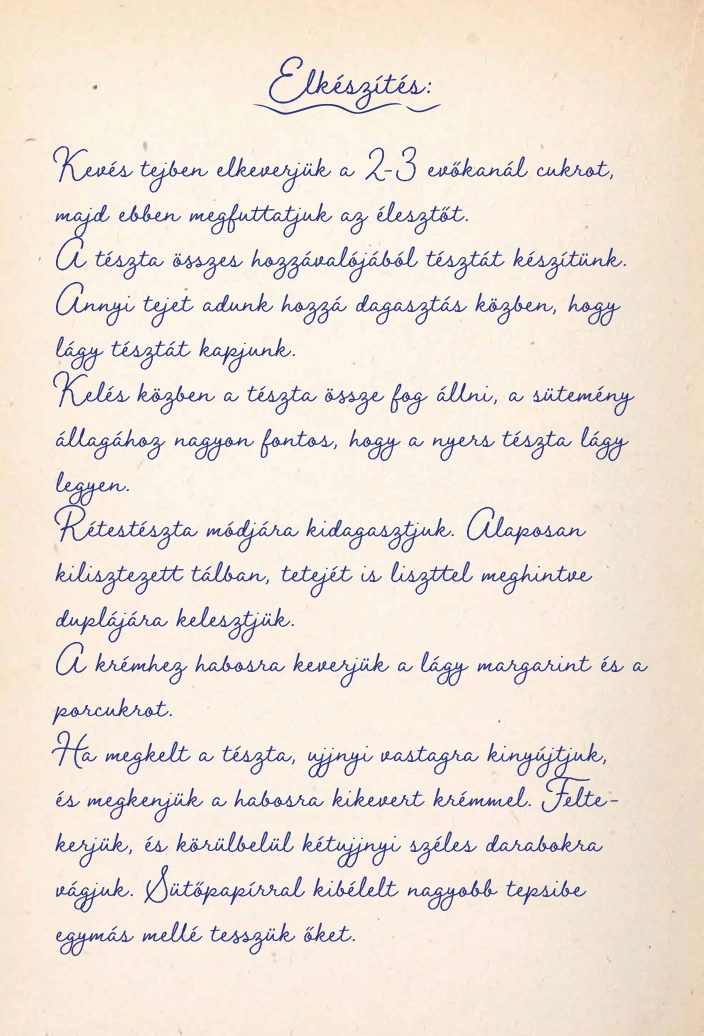 Elkészítés:
Kevés tejben elkeverjük a 2-3 evőkanál cukrot,
majd ebben megfuttatjuk az élesztőt.
A tészta összes hozzávalójából tésztát készítünk.
Annyi tejet adunk hozzá dagasztás közben, hogy
lágy tésztát kapjunk.
Kelés közben a tészta össze fog állni, a sütemény
állagához nagyon fontos, hogy a nyers tészta lágy
legyen.
Rétestészta módjára kidagasztjuk. Alaposan
kilisztezett tálban, tetejét is liszttel meghintve
duplájára kelesztjük.
A krémhez habosra keverjük a lágy margarint és a
porcukrot.
Ha megkelt a tészta, ujjnyi vastagra kinyújtjuk,
és megkenjük a habosra kikevert krémmel. Felte-
kerjük, és körülbelül kétujjnyi széles darabokra
vágjuk. Sütőpapírral kibélelt nagyobb tepsibe
egymás mellé tesszük őket.